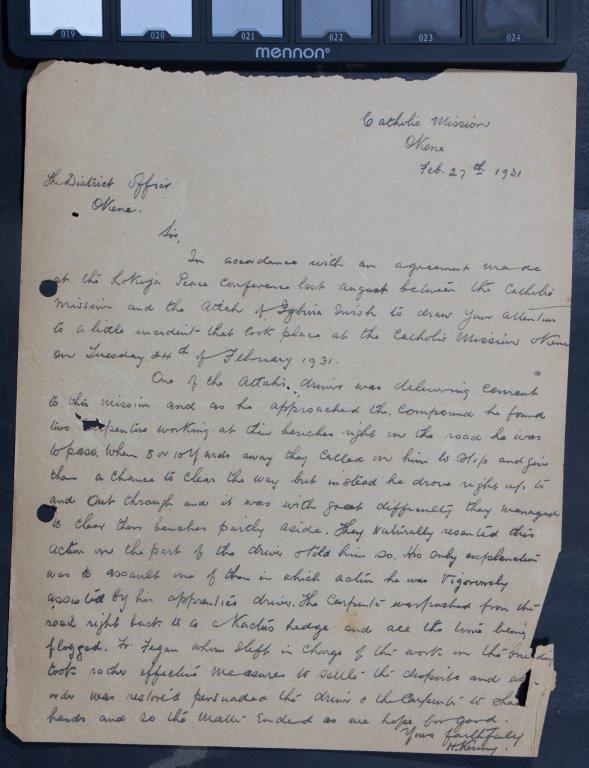 019 020 021 022 023 024
mennon®
Catholic Mission
Okene
Feb. 27th 1931
The District Officer
Okene.
Sir,
In accordance with an agreement made
at the Lokoja Peace Conference last august between the Catholic
Mission and the Attah of Igbira I wish to draw your attention
to a little incident that took place at the Catholic Mission Okene
on Tuesday 24th of February 1931.
One of the Attah's drivers was delivering cement
to this mission and as he approached the compound he found
two carpenters working at their benches right in the road he was
to pass. When 8 or 10 yards away they called on him to stop and give
them a chance to clear the way but instead he drove right up to
and out through and it was with great difficulty they managed
to clear their benches partly aside. They naturally resented this
action on the part of the driver & told him so. His only explanation
was to assault one of them in which action he was vigorously
assisted by his apprentice driver. The carpenter was pushed from the
road right back to a Kactus hedge and all the time being
flogged. Fr. Fegan whom I left in charge of the work on the building
took rather effective measures to settle the dispute and
order was restored persuaded the driver & the carpenter to shake
hands and so the matter ended as we hope for good.
Yours faithfully
H. Kenny.